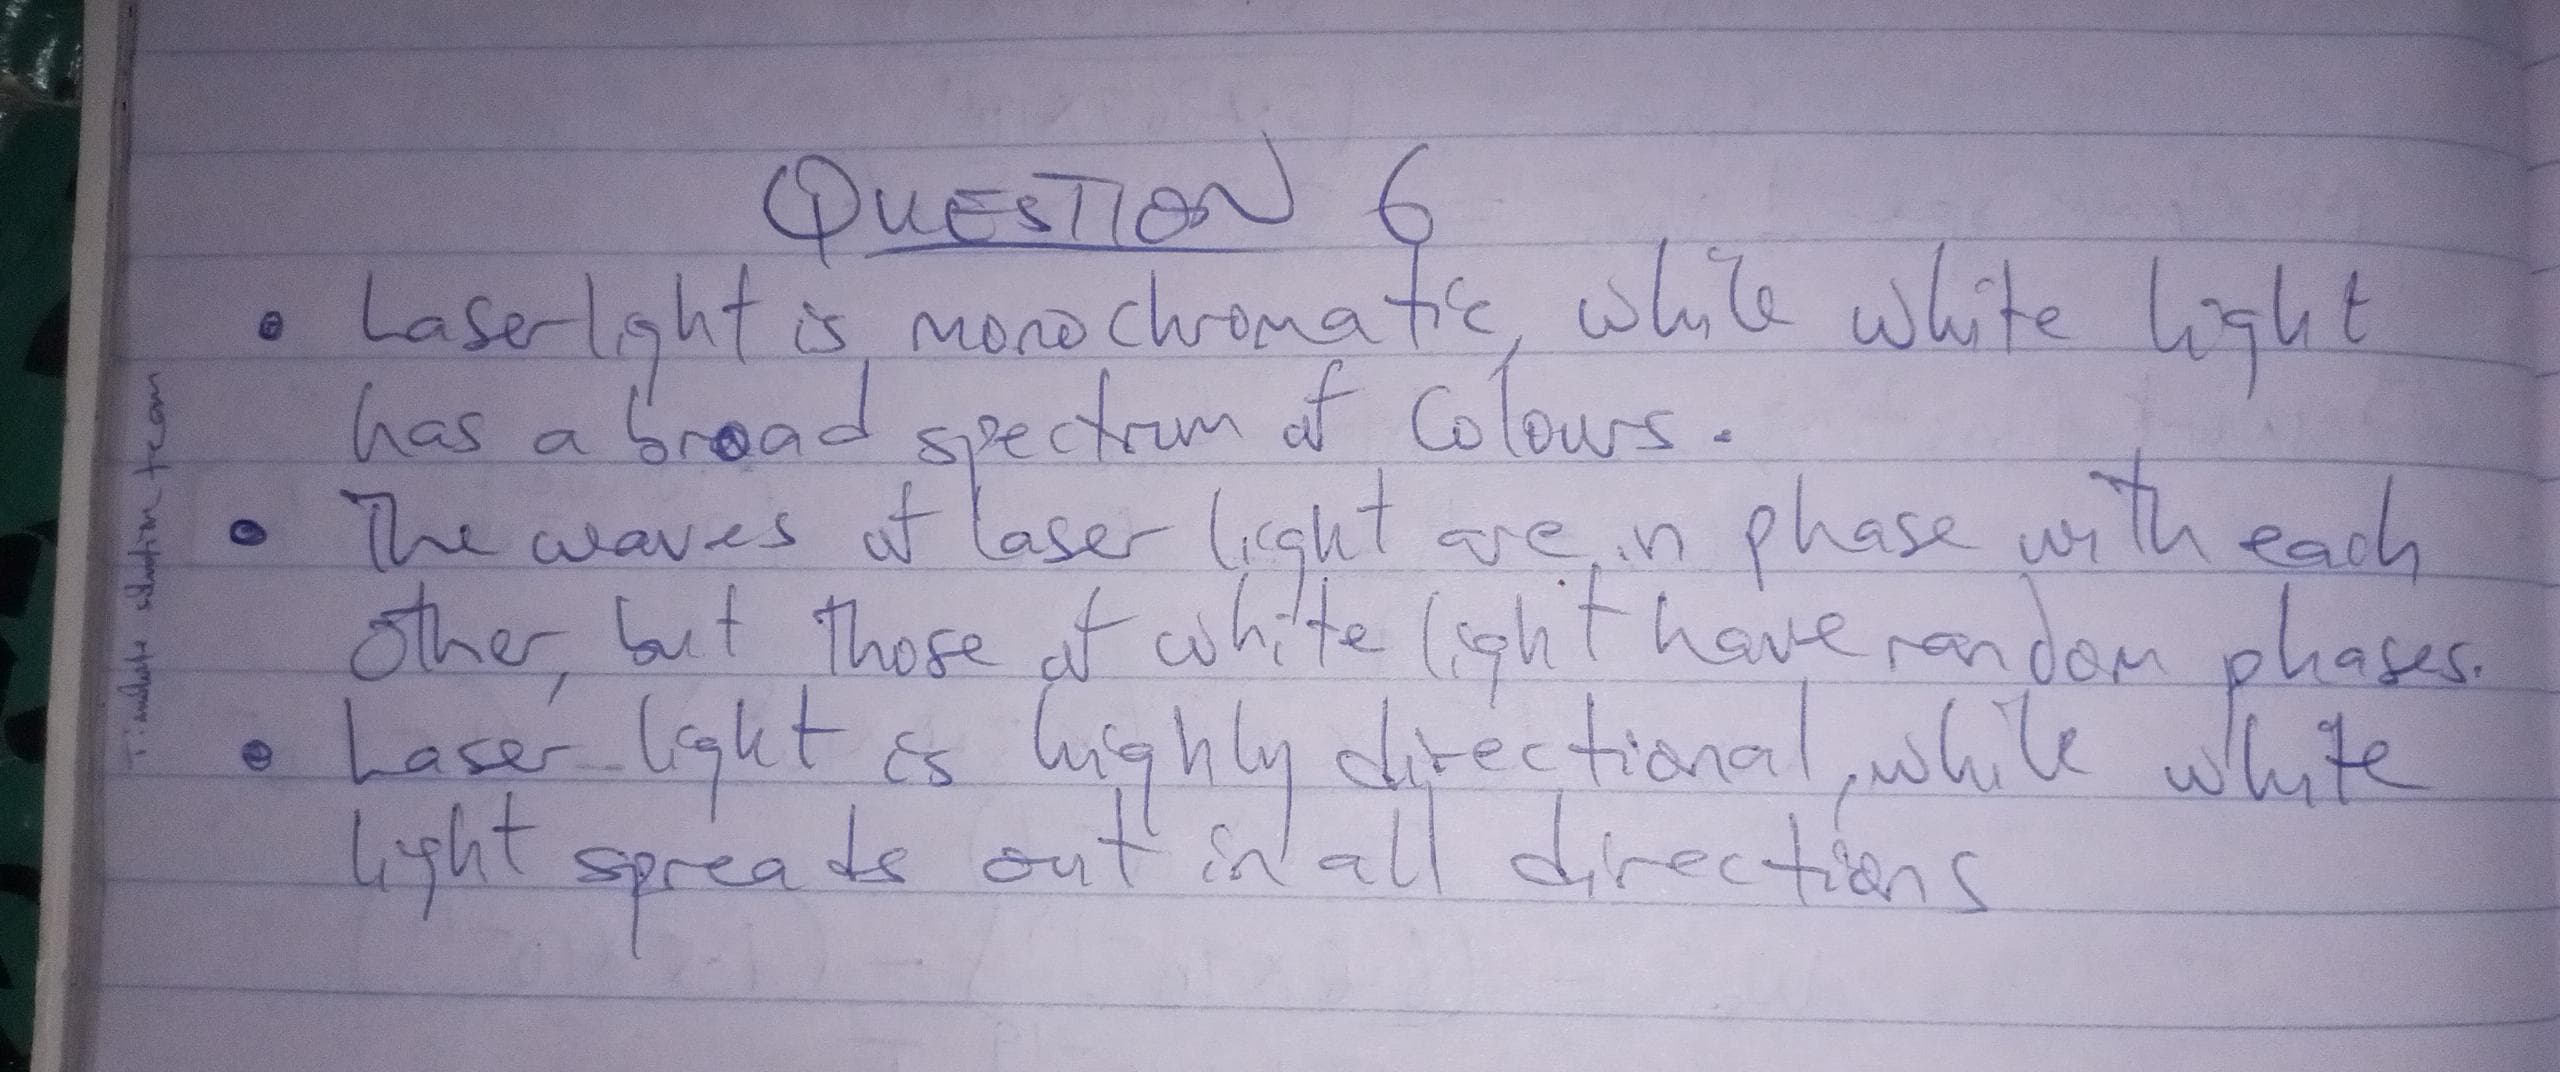 QUESTION 6
• Laser light is monochromatic, while white light
has a broad spectrum of Colours.
• The waves of laser light are in phase with each
other, but those of white light have random phases.
• Laser light is highly directional, while white
light spreads out in all directions
team